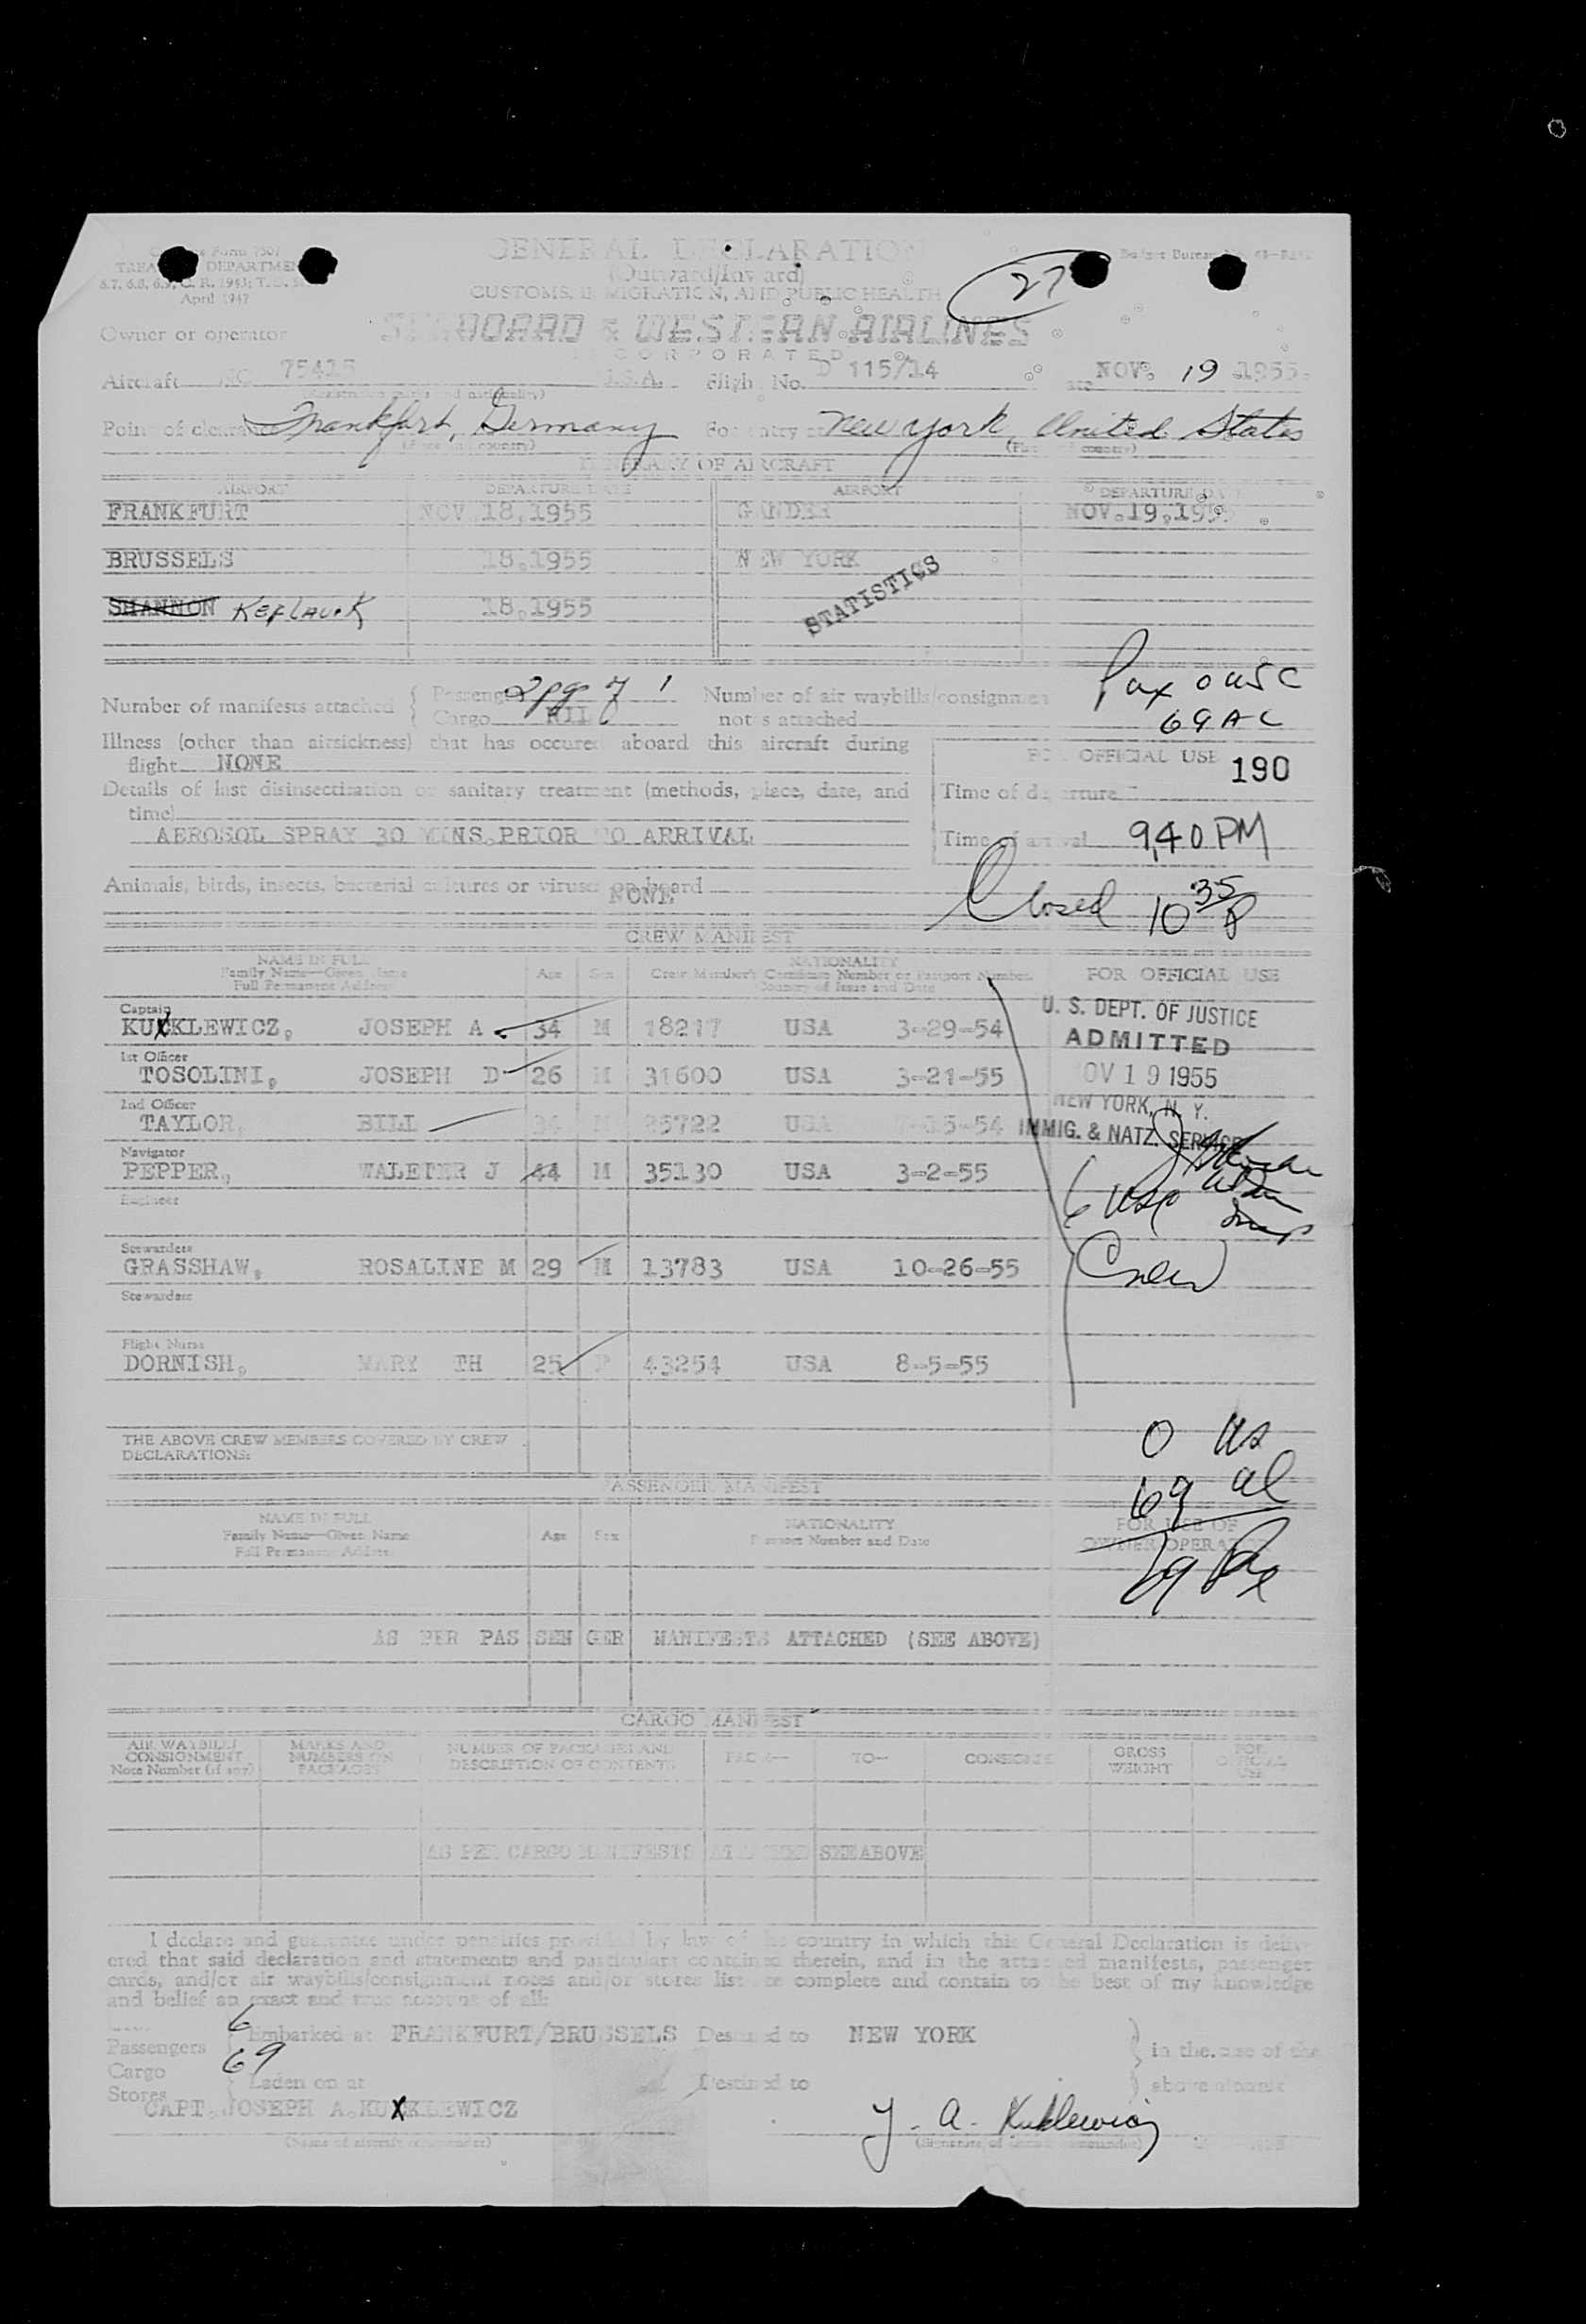 GENERAL DECLARATION
(Outward/Inward)
CUSTOMS, IMMIGRATION, AND PUBLIC HEALTH
TREASURY DEPARTMENT
April 1947
27
Owner or operator SEABOARD & WESTERN AIRLINES
INCORPORATED
Aircraft 75415 U.S.A. Flight No. D 115/14 NOV. 19 1955
Point of clearance Frankfurt, Germany For entry at New York, United States
ITINERARY OF AIRCRAFT
AIRPORT DEPARTURE DATE AIRPORT DEPARTURE DATE
FRANKFURT NOV 18,1955 GANDER NOV.19,1955
BRUSSELS 18,1955 NEW YORK
SHANNON KEFLAVIK 18,1955
STATISTICS
Pax 0 USC
69 AC
Number of manifests attached { Passenger 2 pg of 1 Number of air waybills/consignment
Cargo NIL notes attached
Illness (other than airsickness) that has occured aboard this aircraft during
flight NONE
FOR OFFICIAL USE 190
Details of last disinsectization or sanitary treatment (methods, place, date, and
time)
Time of departure
AEROSOL SPRAY 30 MINS.PRIOR TO ARRIVAL
Time of arrival 9,40 PM
Animals, birds, insects, bacterial cultures or viruses on board
NONE
Closed 10 35 P
CREW MANIFEST
NAME IN FULL
Family Name—Given Name
Full Permanent Address
Age Sex
NATIONALITY
Crew Member's Certificate Number or Passport Number,
Country of Issue and Date
FOR OFFICIAL USE
Captain
KUCKLEWICZ, JOSEPH A. 34 M 18217 USA 3-29-54
1st Officer
TOSOLINI, JOSEPH D 26 M 31600 USA 3-21-55
2nd Officer
TAYLOR, BILL 34 M USA
Navigator
PEPPER, WALETER J 44 M 35130 USA 3-2-55
Engineer
Stewardess
GRASSHAW, ROSALINE M 29 M 13783 USA 10-26-55
Stewardess
Flight Nurse
DORNISH, MARY TH 25 F 43254 USA 8-5-55
U. S. DEPT. OF JUSTICE
ADMITTED
NOV 19 1955
NEW YORK, N. Y.
IMMIG. & NATZ. SERVICE
6 USC
Crew
THE ABOVE CREW MEMBERS COVERED BY CREW
DECLARATIONS:
0 US
69 al
69 Px
PASSENGER MANIFEST
NAME IN FULL
Family Name—Given Name
Full Permanent Address
Age Sex
NATIONALITY
Passport Number and Date
FOR USE OF
OWNER/OPERATOR
AS PER PASSENGER MANIFESTS ATTACHED (SEE ABOVE)
CARGO MANIFEST
AIR WAYBILL/
CONSIGNMENT
Note Number (if any)
MARKS AND
NUMBERS ON
PACKAGES
NUMBER OF PACKAGES AND
DESCRIPTION OF CONTENTS
FROM— TO— CONSIGNEE
GROSS
WEIGHT
FOR
OFFICIAL
USE
AS PER CARGO MANIFESTS ATTACHED SEE ABOVE
I declare and guarantee under penalties provided by law of the country in which this General Declaration is deliv-
ered that said declaration and statements and particulars contained therein, and in the attached manifests, passenger
cards, and/or air waybills/consignment notes and/or stores list are complete and contain to the best of my knowledge
and belief an exact and true account of all:
6
Passengers 69 Embarked at FRANKFURT/BRUSSELS Destined to NEW YORK
in the case of the
Cargo
Stores Laden on at Destined to above aircraft
CAPT.JOSEPH A.KUCKLEWICZ J. A. Kuklewicz
(Name of aircraft commander) (Signature of aircraft commander)